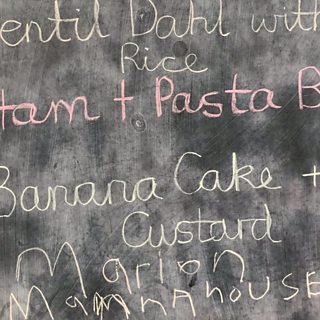 entil Dahl with
Rice
Ham + Pasta B
Banana Cake +
Custard
Marion